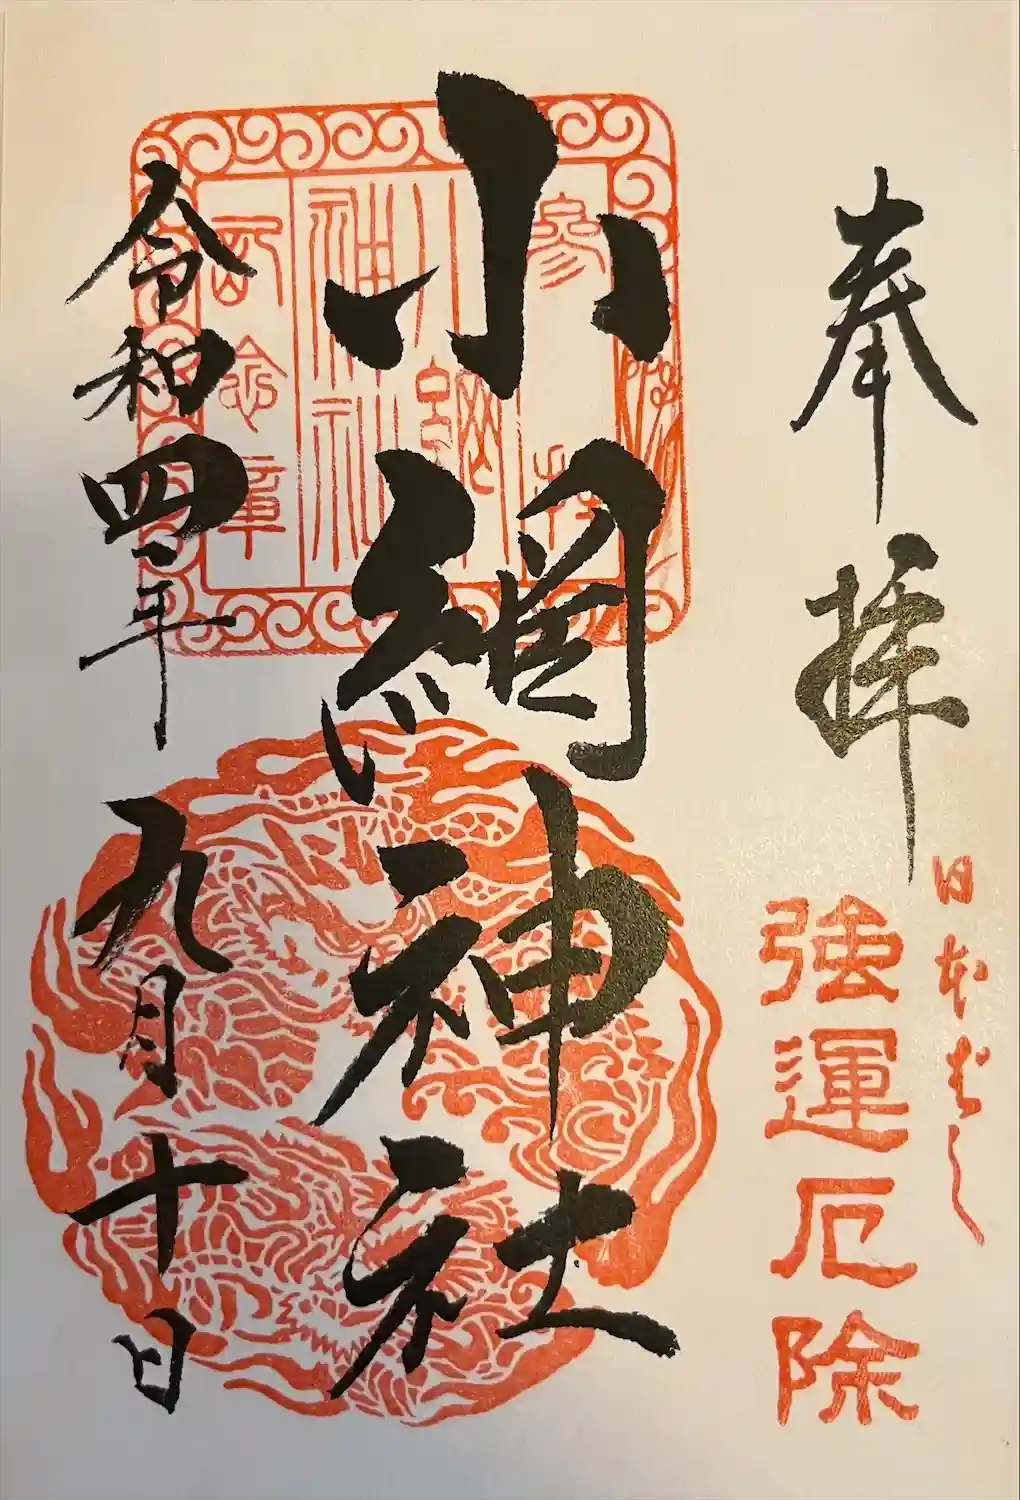 奉拝
日本ばし
強運厄除
小網神社
参拝
小網神社
記念章
令和四年
九月十日